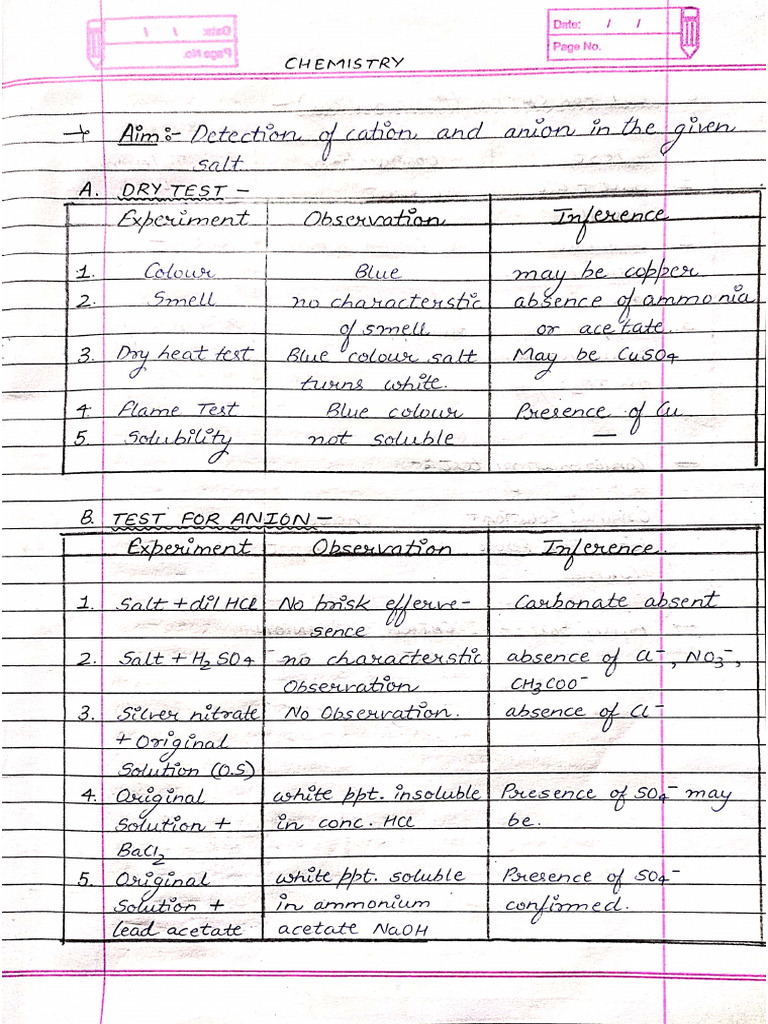 Date: / /
Page No.
CHEMISTRY
→ Aim:- Detection of cation and anion in the given
salt.
A. DRY TEST -
Experiment Observation Inference
1. Colour Blue may be copper
2. Smell no characterstic absence of ammonia
of smell or acetate.
3. Dry heat test Blue colour salt May be CuSO4
turns white.
4. Flame Test Blue colour Presence of Cu
5. Solubility not soluble —
B. TEST FOR ANION -
Experiment Observation Inference.
1. Salt + dil HCl No brisk efferve- Carbonate absent
sence
2. Salt + H2SO4 no characterstic absence of Cl⁻, NO3⁻,
Observation CH3COO⁻
3. Silver nitrate No Observation. absence of Cl⁻
+ Original
Solution (O.S)
4. Original white ppt. insoluble Presence of SO4⁻ may
Solution + in conc. HCl be.
BaCl2
5. Original white ppt. soluble Presence of SO4⁻
Solution + in ammonium confirmed.
lead acetate acetate NaOH